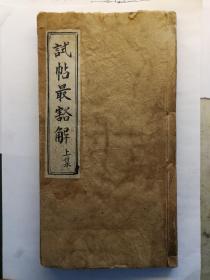 試帖最豁解上集